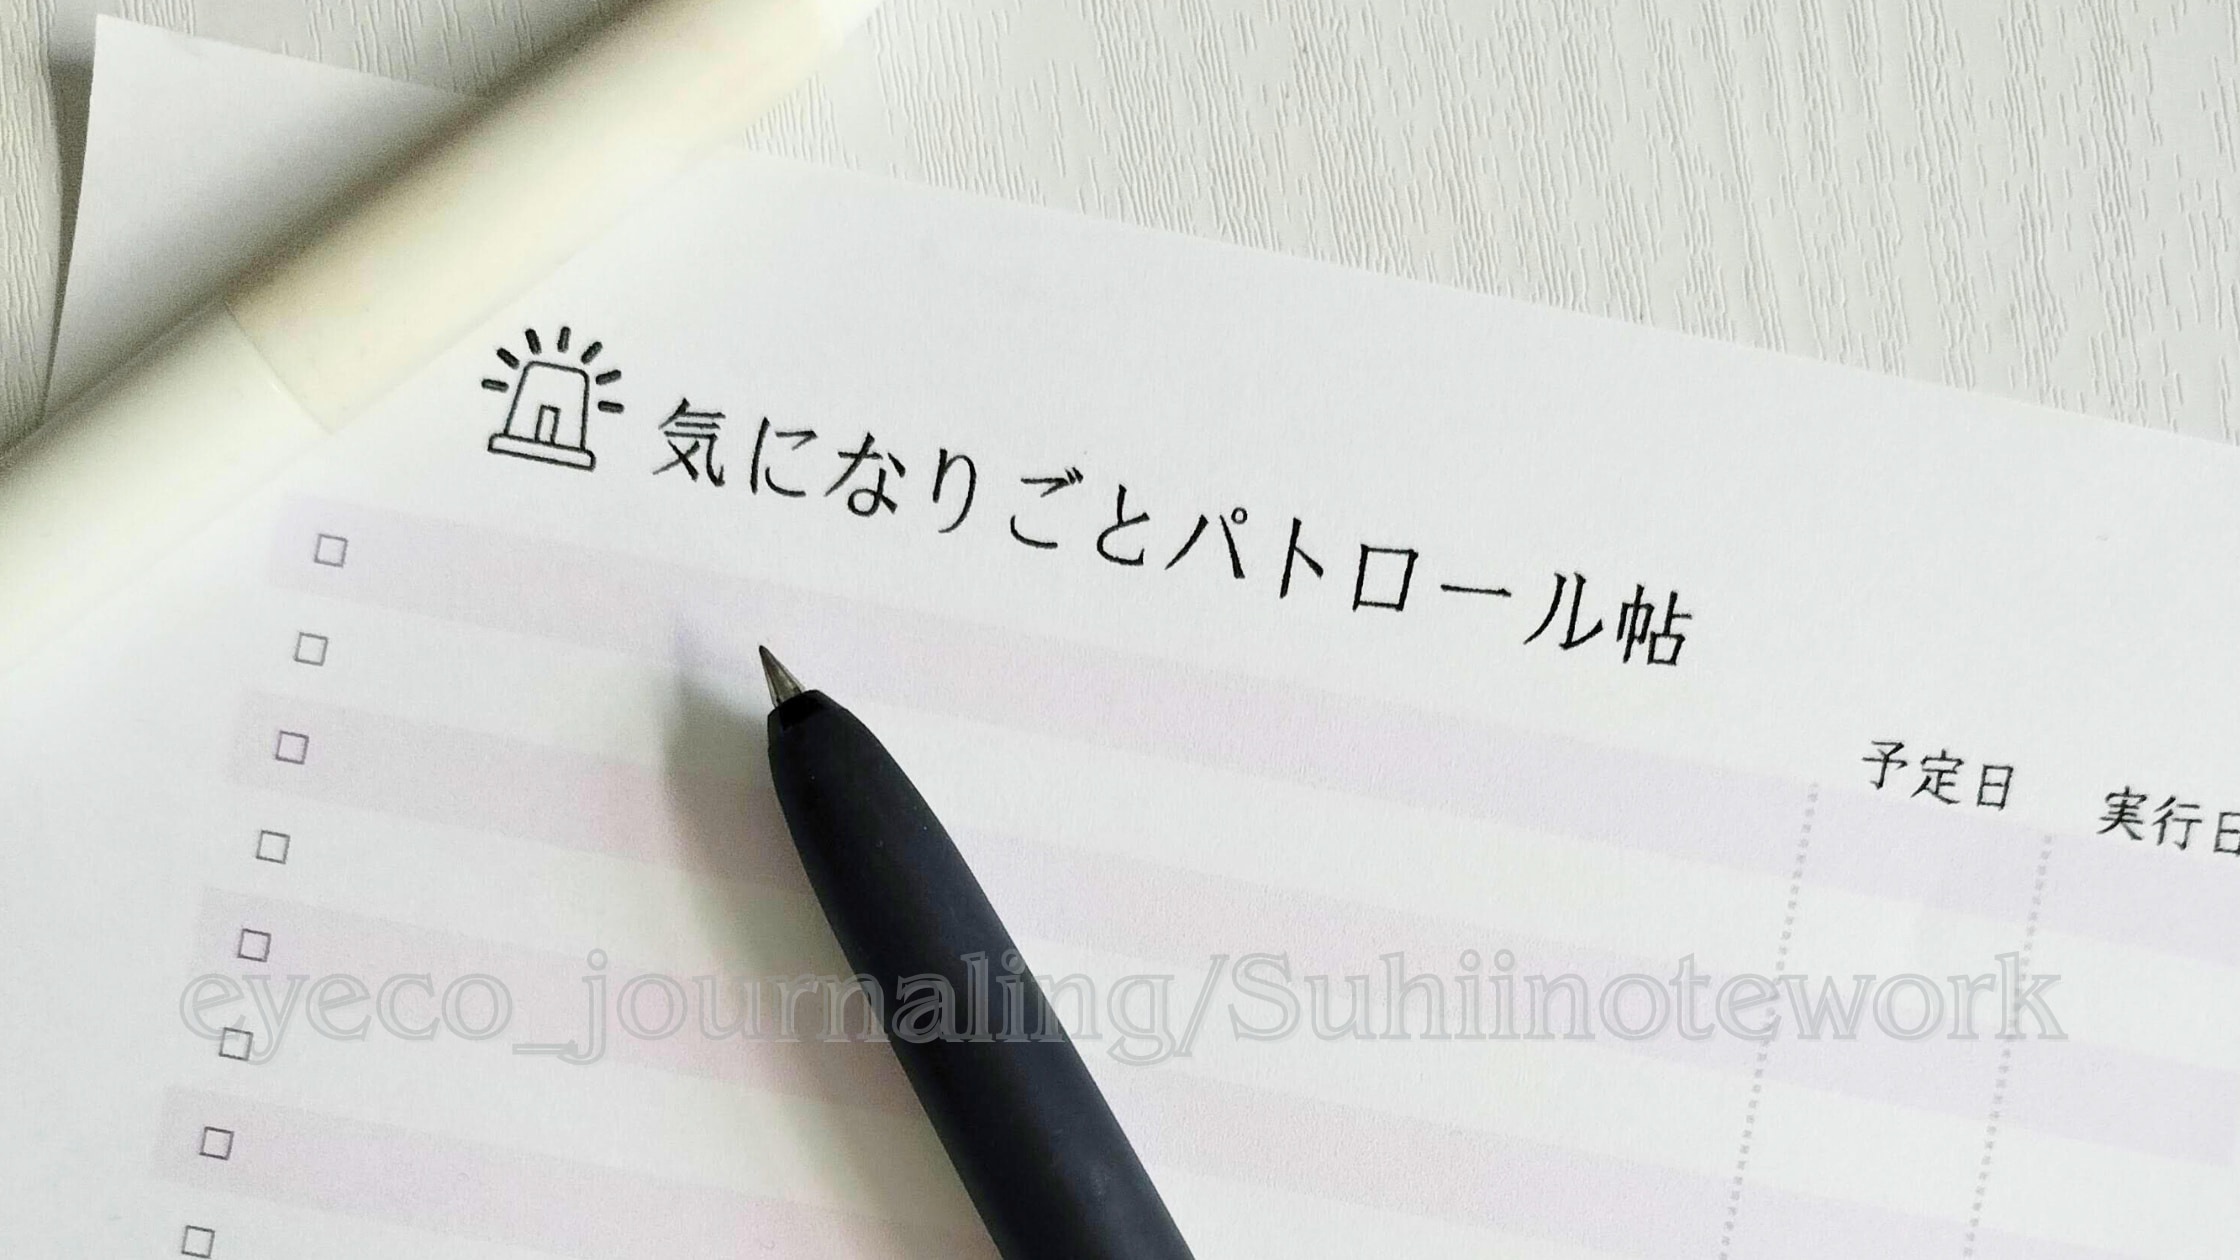 気になりごとパトロール帖
予定日 実行日
eyeco_journaling/Suhiinotework